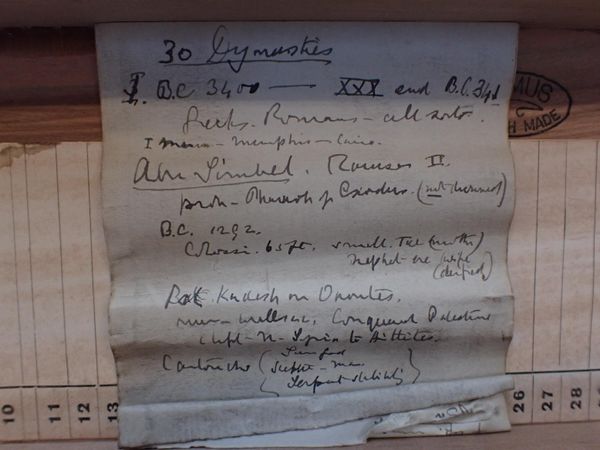 30 Dynasties
I. B.C 3400 — XXX end B.C. 341
Greeks. Romans - all sorts.
I Menes - Memphis - Cairo.
Abu Simbel. Ramses II.
prob - Pharaoh of Exodus. (not drowned)
B.C. 1292.
Colossi. 65 ft. small. Tue (mother)
Nephet-ere (wife
(deified)
Kadesh on Orontes.
Conquered Palestine
N. Syria to Hittites.
Cartouche (Sun god
Sceptre - man
Serpent
MUS
H MADE
10 11 12 13 26 27 28